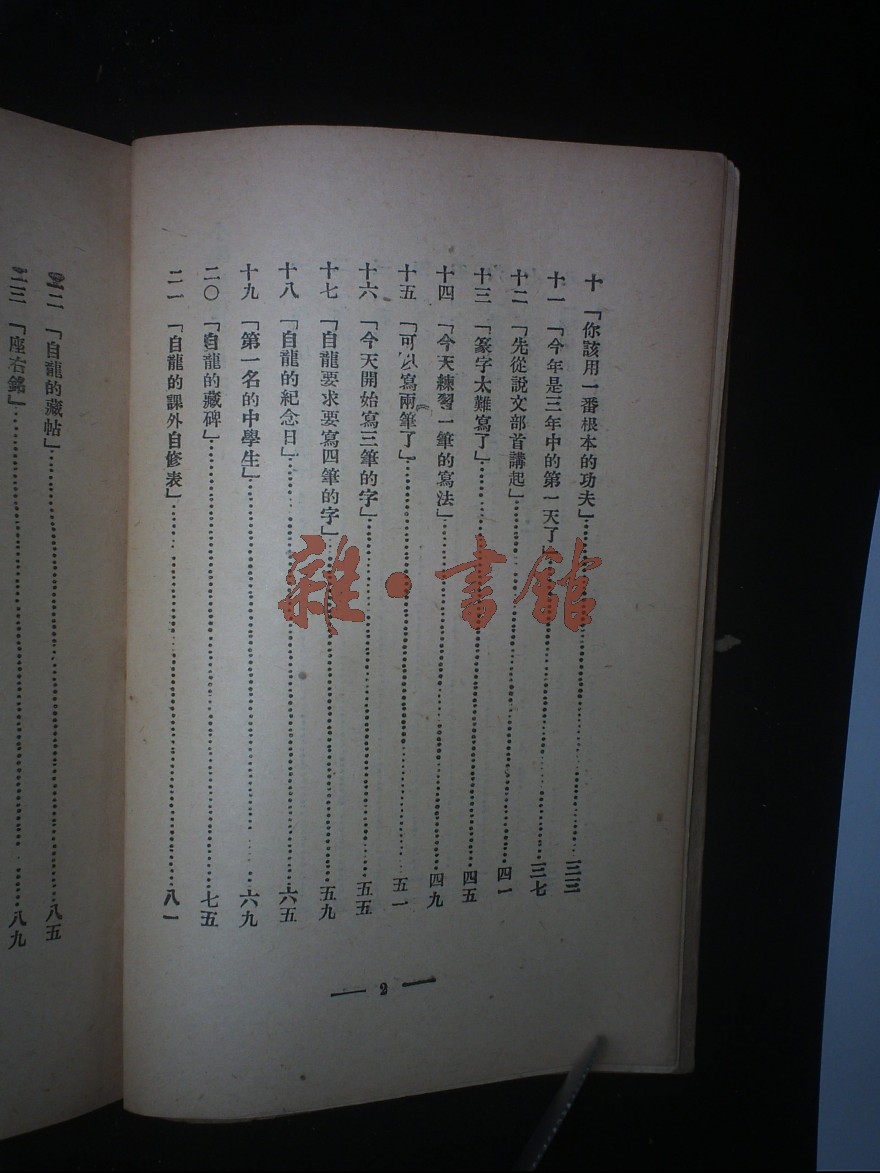 十 「你該用一番根本的功夫」 三三
十一 「今年是三年中的第一天了」 三七
十二 「先從説文部首講起」 四一
十三 「篆字太難寫了」 四五
十四 「今天練習一筆的寫法」 四九
十五 「可以寫兩筆了」 五一
十六 「今天開始寫三筆的字」 五五
十七 「自龍要求要寫四筆的字」 五九
十八 「自龍的紀念日」 六五
十九 「第一名的中學生」 六九
二〇 「自龍的藏碑」 七五
二一 「自龍的課外自修表」 八一
— 2 —
二二 「自龍的藏帖」 八五
二三 「座右銘」 八九
雜·書館